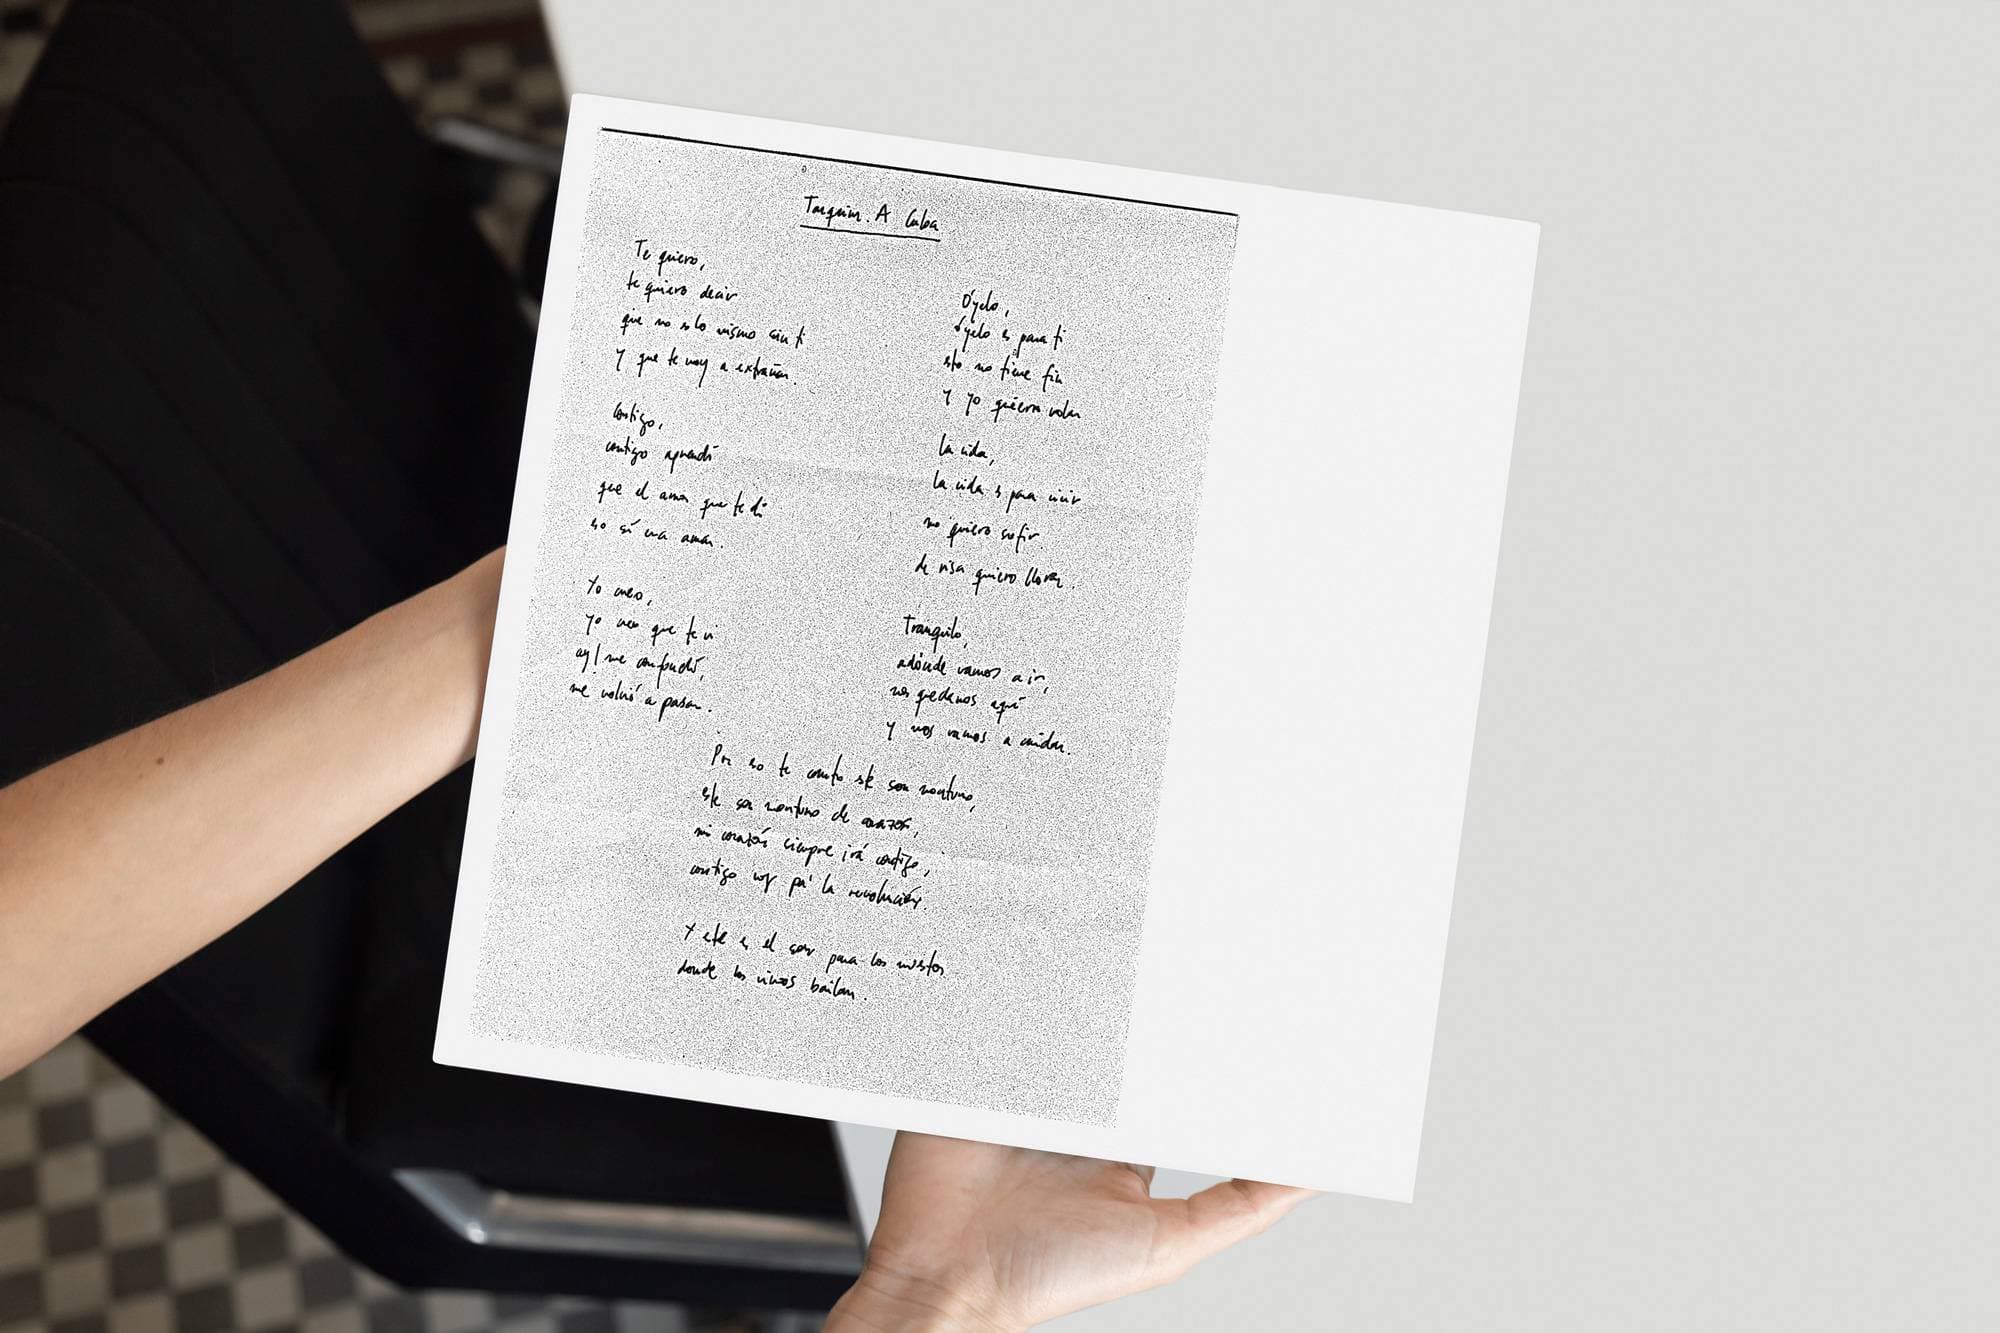 Tarquin. A Cuba
Te quiero,
te quiero decir
que no es lo mismo sin ti
y que te voy a extrañar.
Contigo,
contigo aprendí
que el amor que te di
eso sí era amar.
Yo creo,
yo creo que te vi
ay! me confundí,
me volvió a pasar.
Óyelo,
óyelo es para ti
esto no tiene fin
y yo quiero volar
La vida,
la vida es para vivir
no quiero sufrir.
de risa quiero llorar.
Tranquilo,
adónde vamos a ir,
nos quedamos aquí
y nos vamos a cuidar.
Por eso te canto este son montuno,
este son montuno de corazón,
mi corazón siempre irá contigo,
contigo voy pa' la revolución.
Y este es el son para los muertos
donde los vivos bailan.